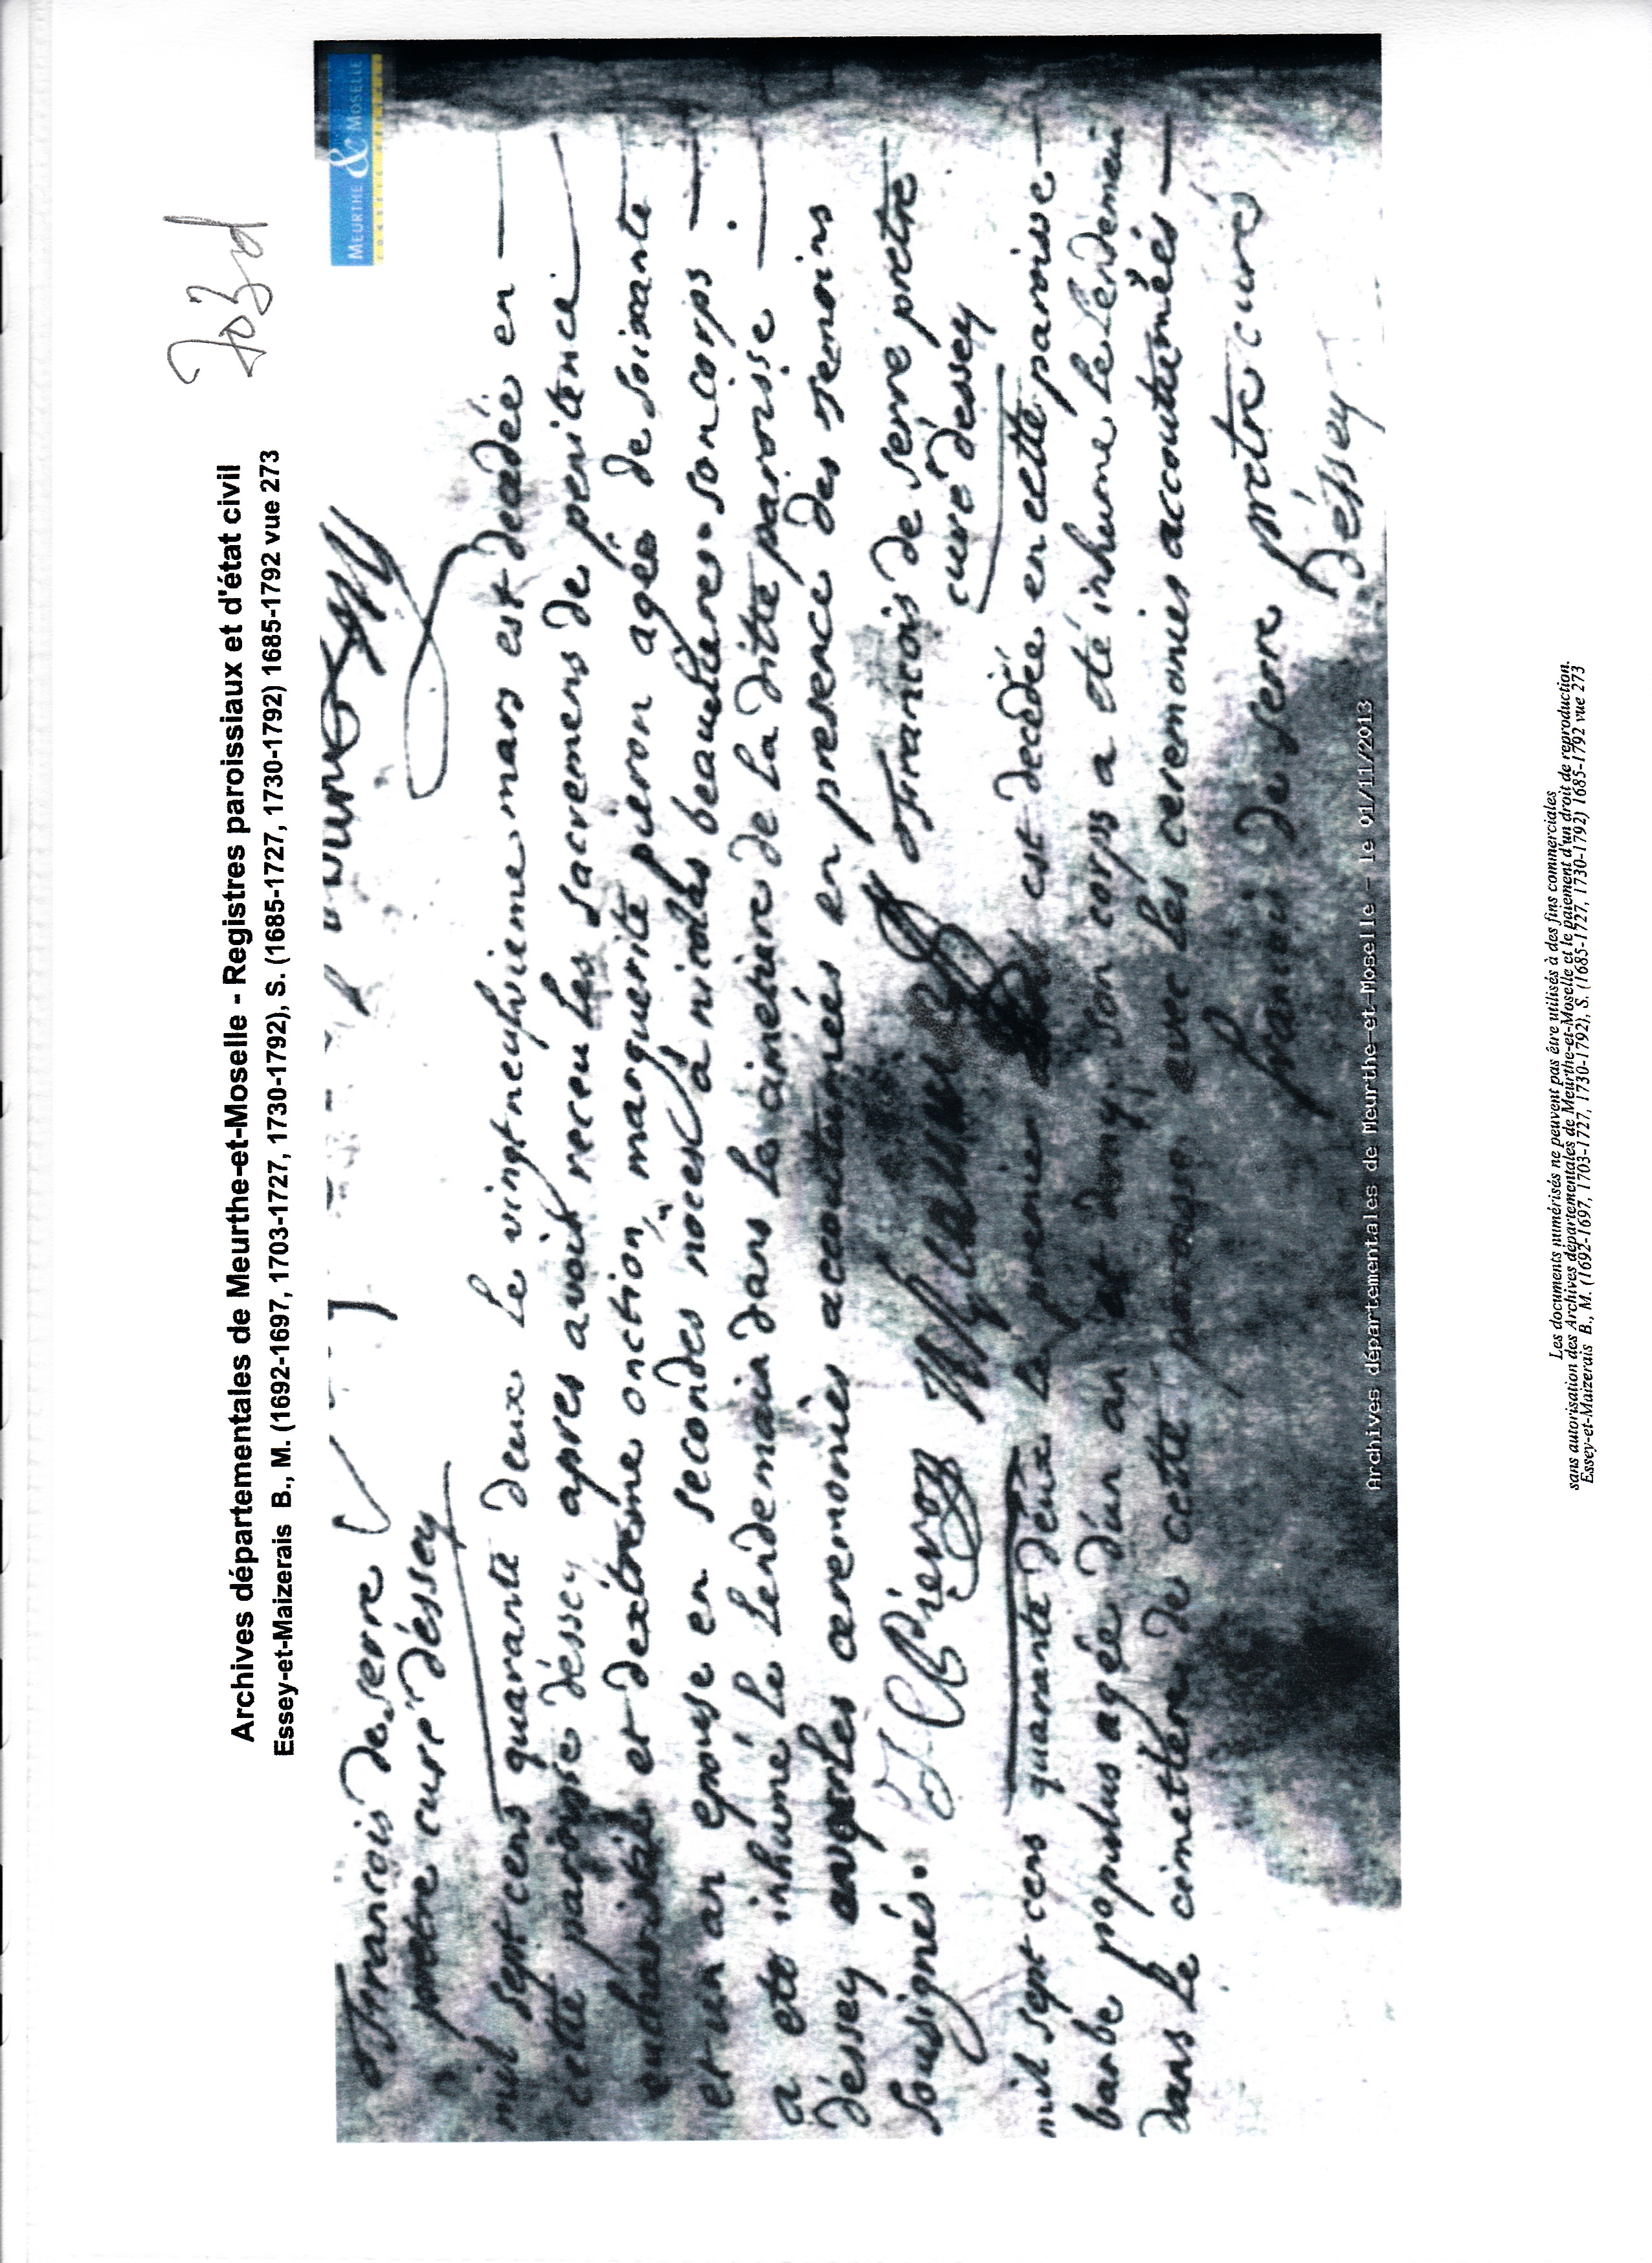 703d
Archives départementales de Meurthe-et-Moselle - Registres paroissiaux et d'état civil
Essey-et-Maizerais B., M. (1692-1697, 1703-1727, 1730-1792), S. (1685-1727, 1730-1792) 1685-1792 vue 273
MEURTHE & MOSELLE
francois de serre
pretre curé déssey
mil sept cens quarante deux le vingtneufvieme mars est decedée en
cette paroisse déssey apres avoir receu les sacremens de penitence
eucharistie et dextreme onction marguerite pieron agée de soixante
et un an epouse en secondes noces à nicolas beau son corps
a eté inhumé le lendemain dans le cimetiere de la ditte paroisse
déssey avec les ceremonies accoutumées en presence des temoins
sousignés. francois de serre pretre
curé dessey
mil sept cens quarante deux le premier est decedée en cette paroisse
barbe populus agée d'un an et demy son corps a eté inhumé le lendemain
dans le cimettiere de cette paroisse avec les ceremonies accoutumées
francois de serre pretre curé
déssey
Archives départementales de Meurthe-et-Moselle - le 01/11/2013
Les documents numérisés ne peuvent pas être utilisés à des fins commerciales
sans autorisation des Archives départementales de Meurthe-et-Moselle et le paiement d'un droit de reproduction.
Essey-et-Maizerais B., M. (1692-1697, 1703-1727, 1730-1792), S. (1685-1727, 1730-1792) 1685-1792 vue 273